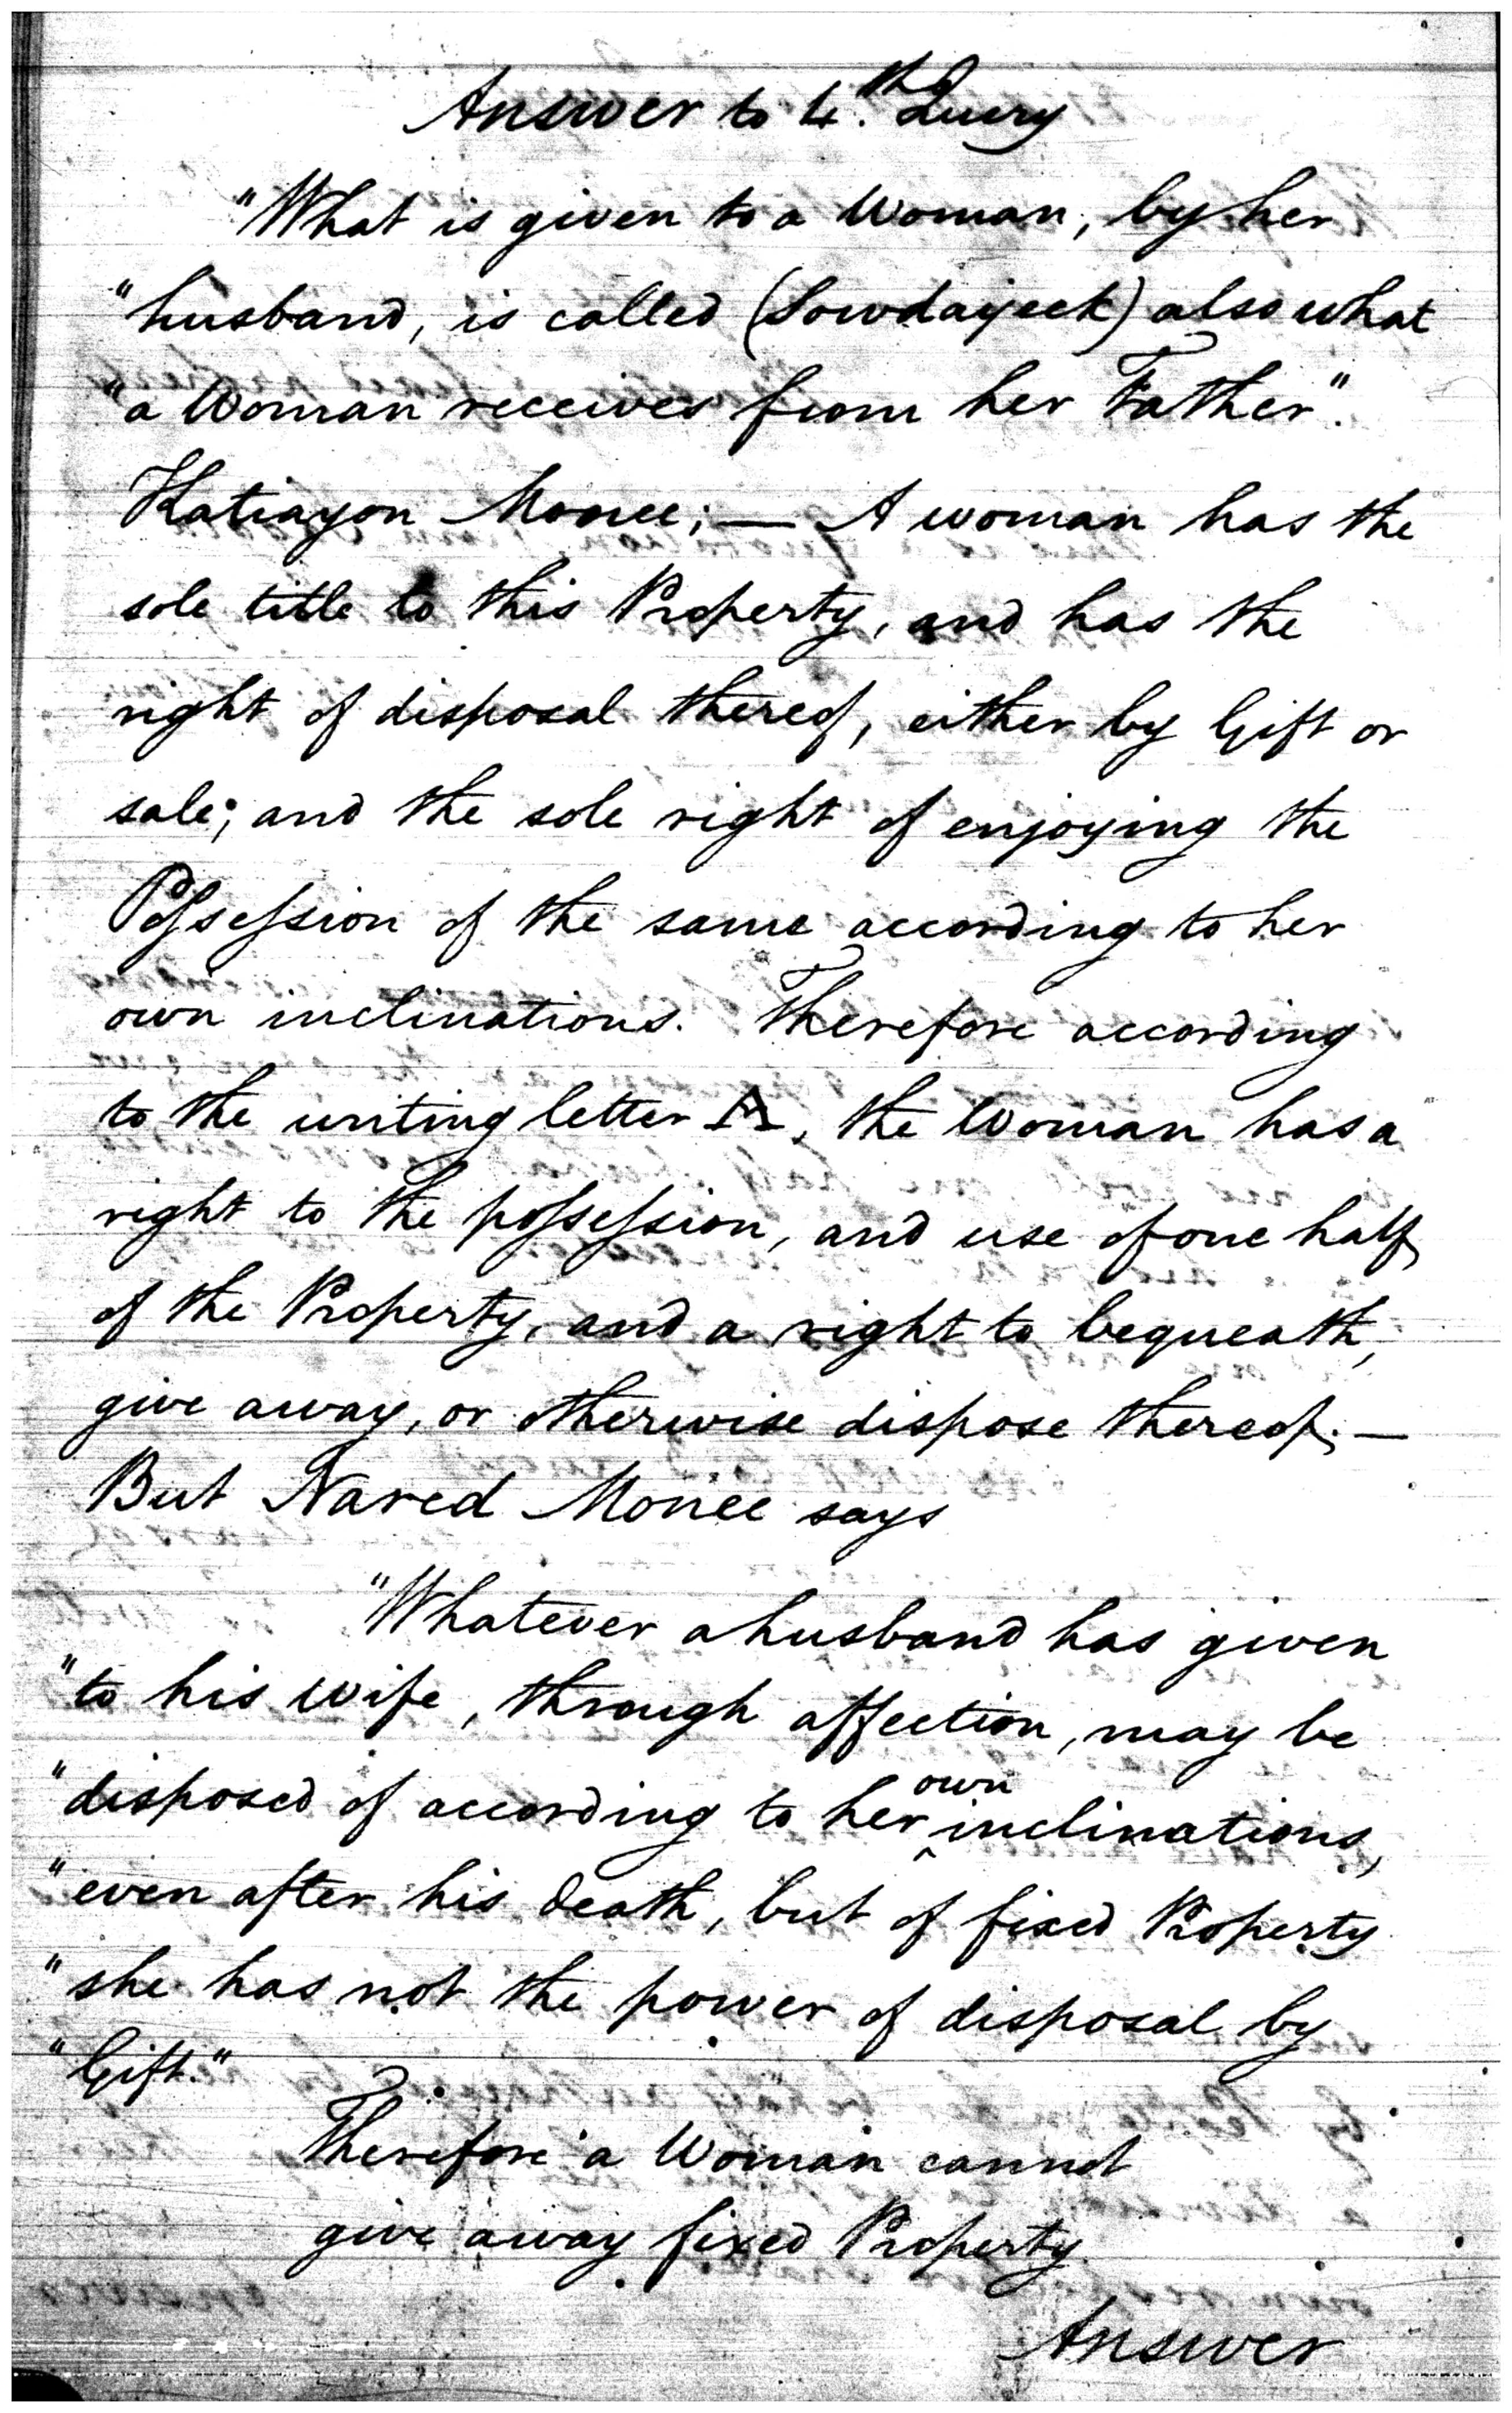 Answer to 4.th Query
"What is given to a Woman, by her
"husband, is called (Sowdayeek) also what
"a Woman receives from her Father".
Katiayon Monee; — A woman has the
sole title to this Property, and has the
right of disposal thereof, either by Gift or
sale; and the sole right of enjoying the
Possession of the same according to her
own inclinations. Therefore according
to the writing letter A, the Woman has a
right to the possession, and use of one half
of the Property, and a right to bequeath,
give away, or otherwise dispose thereof; —
But Nared Monee says
"Whatever a husband has given
"to his wife, through affection, may be
"disposed of according to her own inclinations,
"even after his death, but of fixed Property
"she has not the power of disposal by
"Gift."
Therefore a Woman cannot
give away fixed Property.
Answer